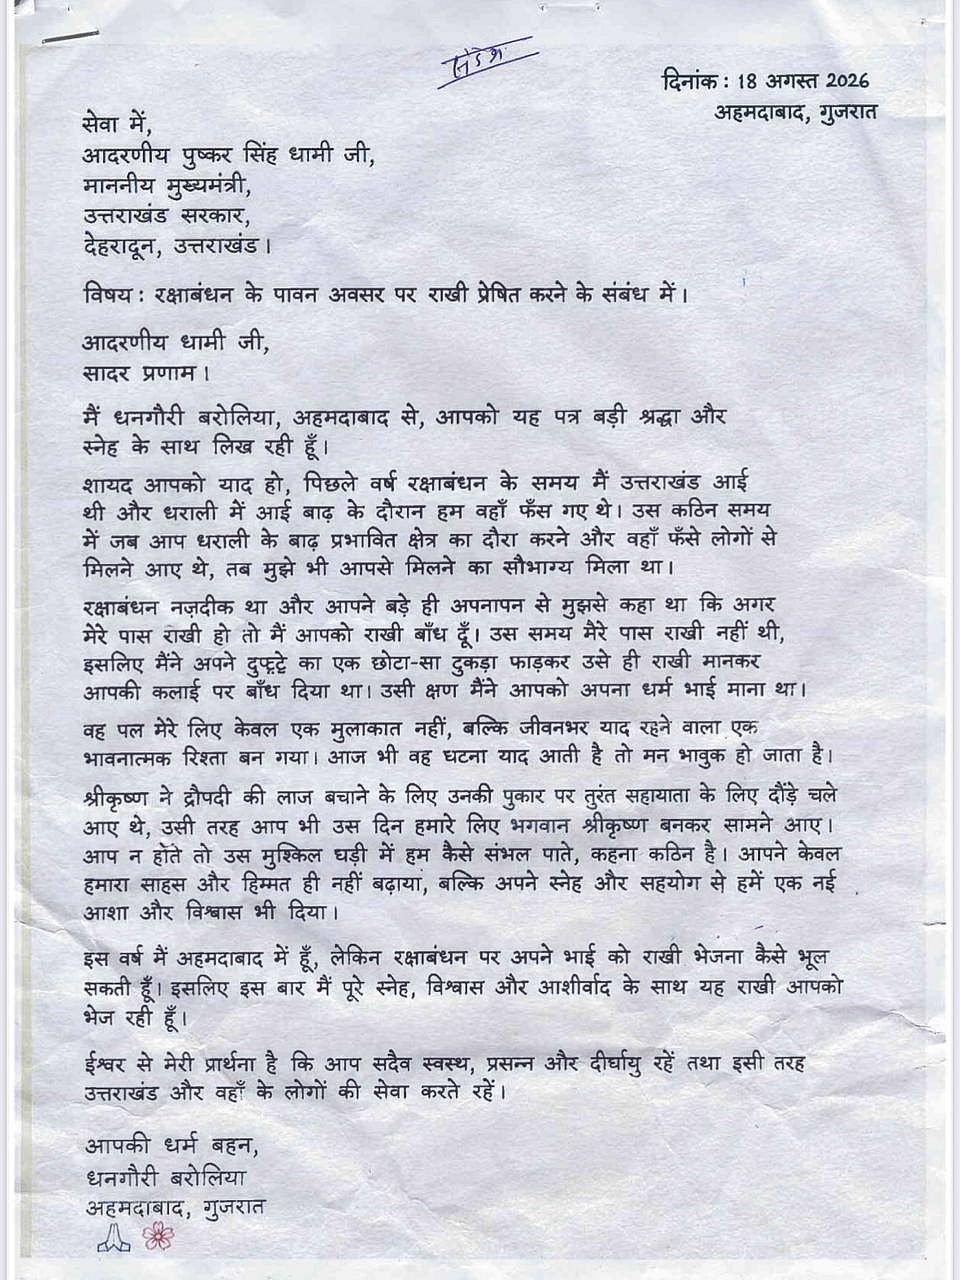 दिनांक : 18 अगस्त 2026
अहमदाबाद, गुजरात
सेवा में,
आदरणीय पुष्कर सिंह धामी जी,
माननीय मुख्यमंत्री,
उत्तराखंड सरकार,
देहरादून, उत्तराखंड।
विषय : रक्षाबंधन के पावन अवसर पर राखी प्रेषित करने के संबंध में।
आदरणीय धामी जी,
सादर प्रणाम।
मैं धनगौरी बरोलिया, अहमदाबाद से, आपको यह पत्र बड़ी श्रद्धा और
स्नेह के साथ लिख रही हूँ।
शायद आपको याद हो, पिछले वर्ष रक्षाबंधन के समय मैं उत्तराखंड आई
थी और धराली में आई बाढ़ के दौरान हम वहाँ फँस गए थे। उस कठिन समय
में जब आप धराली के बाढ़ प्रभावित क्षेत्र का दौरा करने और वहाँ फँसे लोगों से
मिलने आए थे, तब मुझे भी आपसे मिलने का सौभाग्य मिला था।
रक्षाबंधन नज़दीक था और आपने बड़े ही अपनापन से मुझसे कहा था कि अगर
मेरे पास राखी हो तो मैं आपको राखी बाँध दूँ। उस समय मैरे पास राखी नहीं थी,
इसलिए मैंने अपने दुपट्टे का एक छोटा-सा टुकड़ा फाड़कर उसे ही राखी मानकर
आपकी कलाई पर बाँध दिया था। उसी क्षण मैंने आपको अपना धर्म भाई माना था।
वह पल मेरे लिए केवल एक मुलाकात नहीं, बल्कि जीवनभर याद रहने वाला एक
भावनात्मक रिश्ता बन गया। आज भी वह घटना याद आती है तो मन भावुक हो जाता है।
श्रीकृष्ण ने द्रौपदी की लाज बचाने के लिए उनकी पुकार पर तुरंत सहायाता के लिए दौंड़े चले
आए थे, उसी तरह आप भी उस दिन हमारे लिए भगवान श्रीकृष्ण बनकर सामने आए।
आप न होते तो उस मुश्किल घड़ी में हम कैसे संभल पाते, कहना कठिन है। आपने केवल
हमारा साहस और हिम्मत ही नहीं बढ़ाया, बल्कि अपने स्नेह और सहयोग से हमें एक नई
आशा और विश्वास भी दिया।
इस वर्ष मैं अहमदाबाद में हूँ, लेकिन रक्षाबंधन पर अपने भाई को राखी भेजना कैसे भूल
सकती हूँ। इसलिए इस बार मैं पूरे स्नेह, विश्वास और आशीर्वाद के साथ यह राखी आपको
भेज रही हूँ।
ईश्वर से मेरी प्रार्थना है कि आप सदैव स्वस्थ, प्रसन्न और दीर्घायु रहें तथा इसी तरह
उत्तराखंड और वहाँ के लोगों की सेवा करते रहें।
आपकी धर्म बहन,
धनगौरी बरोलिया
अहमदाबाद, गुजरात